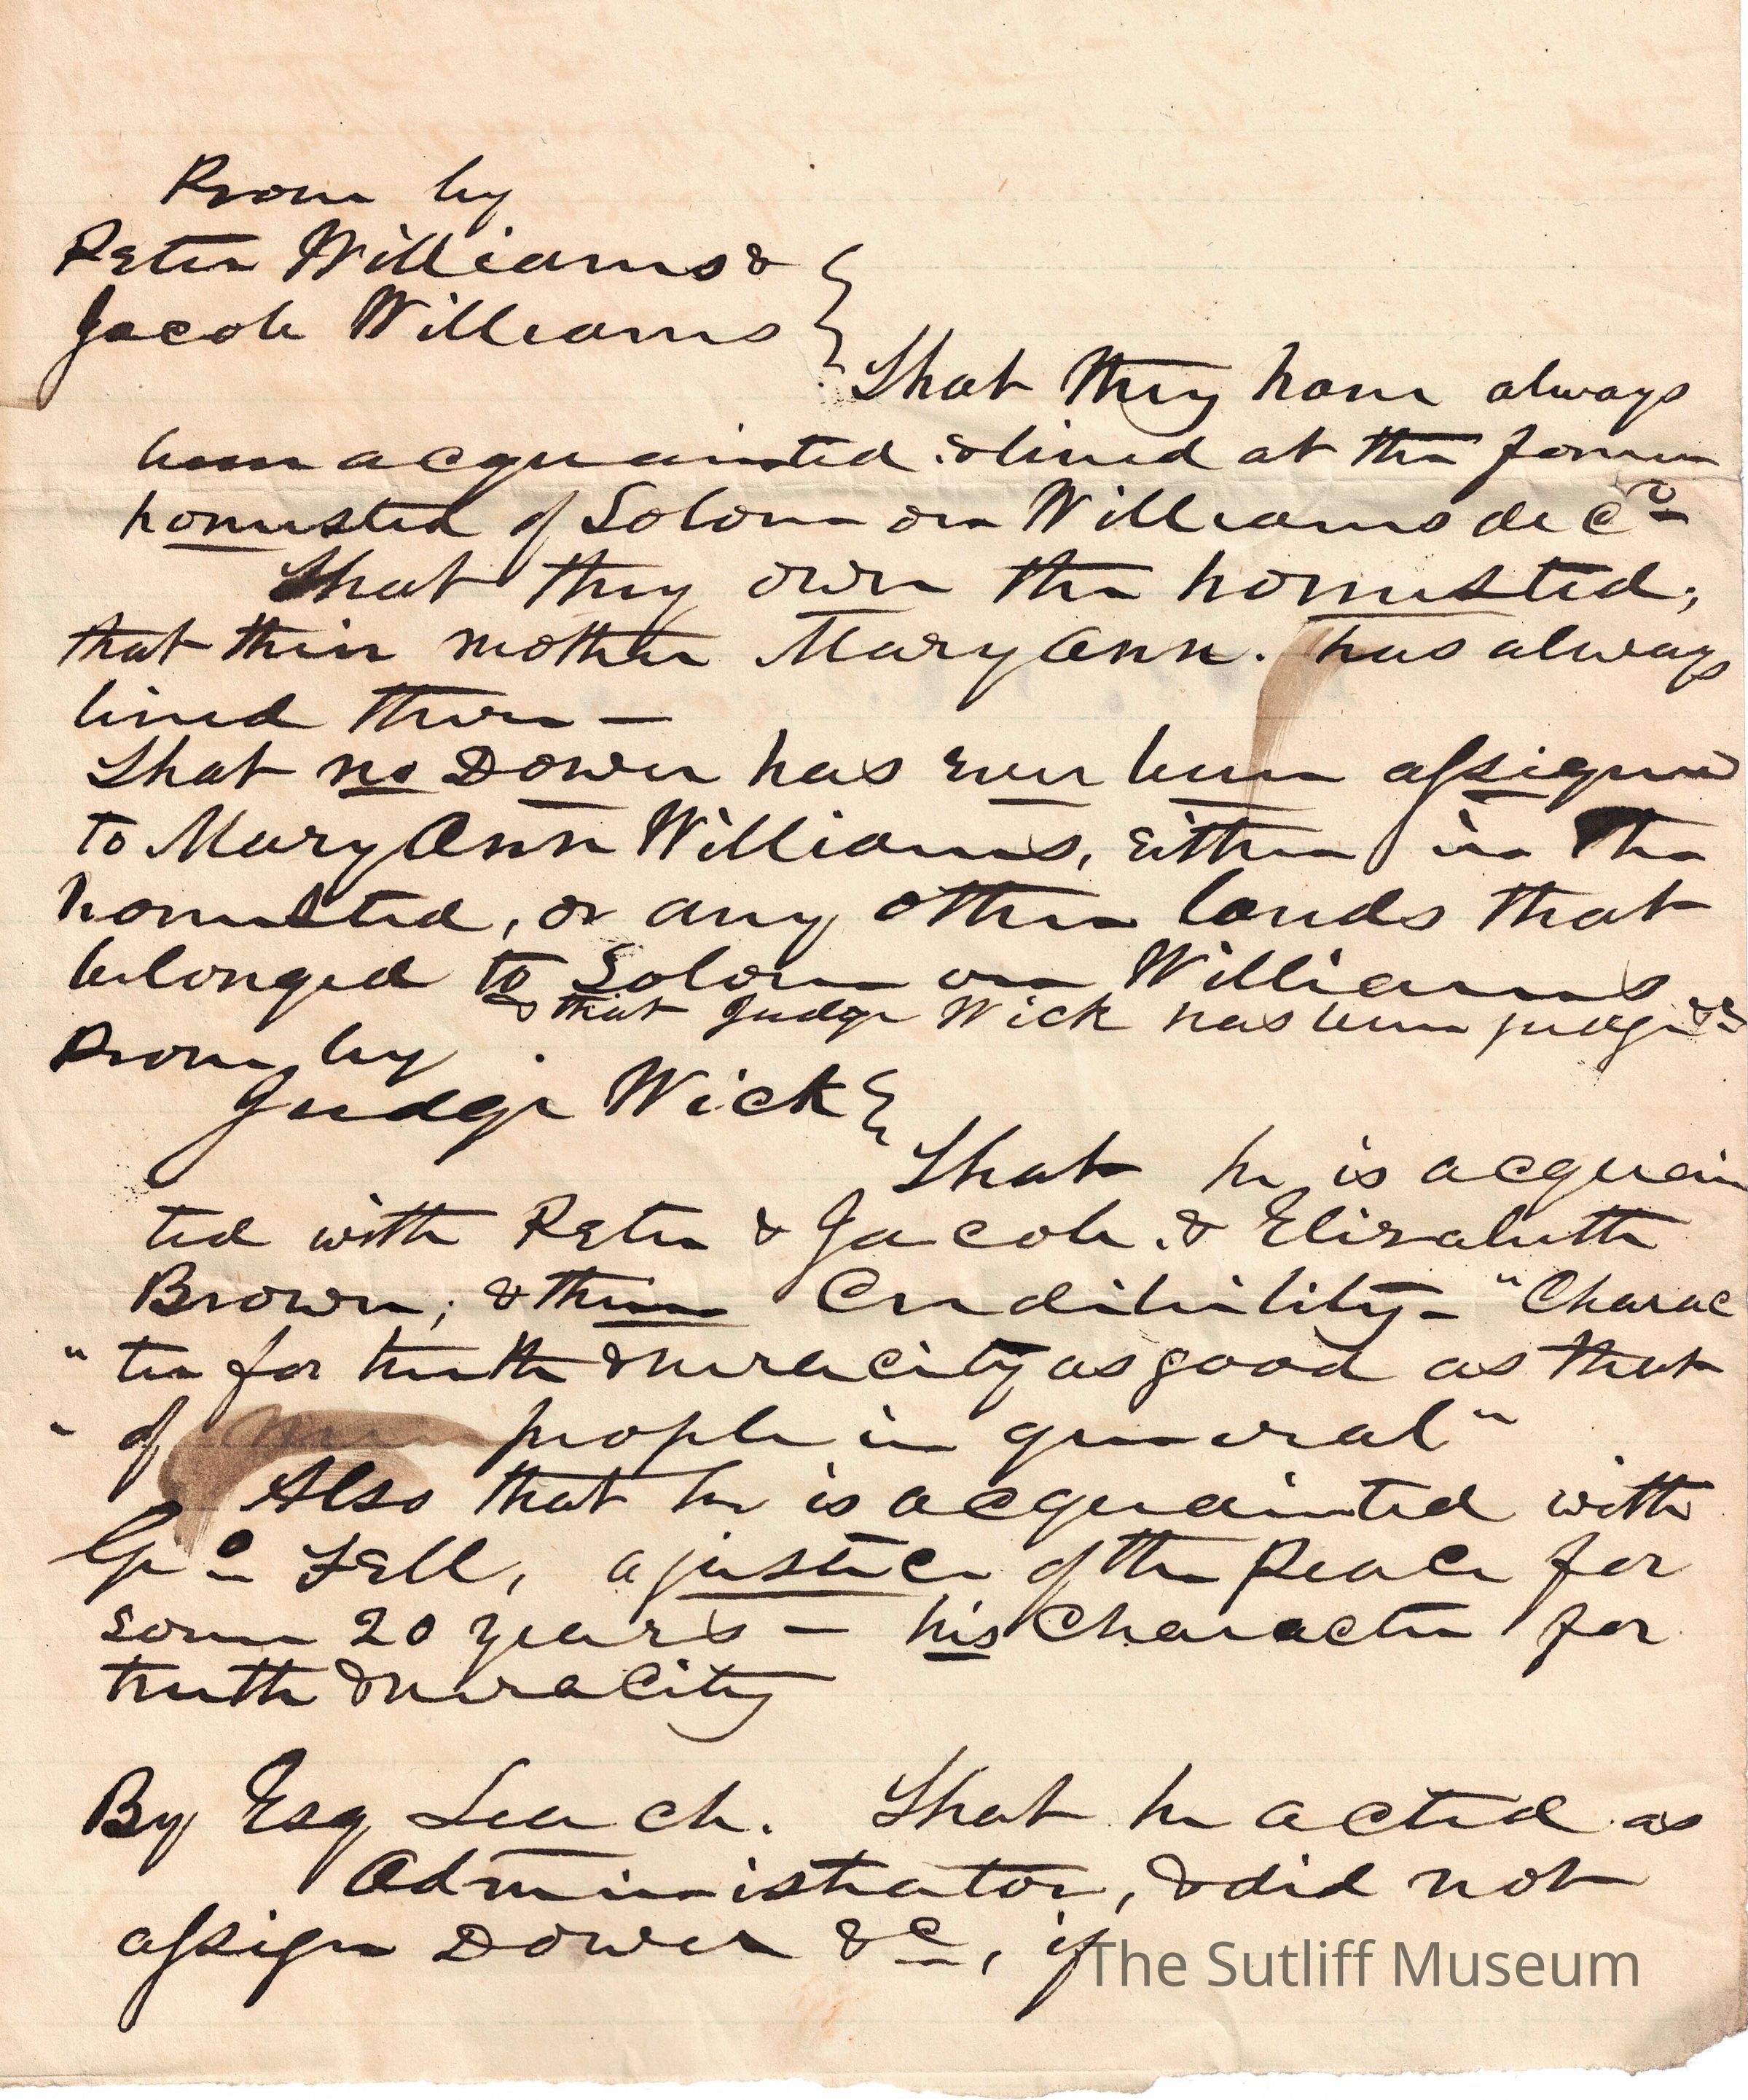 Prove by
Peter Williams &
Jacob Williams }
That they have always
been acquainted & lived at the former
homested of Solomon Williams dec^d
That they own the homested,
that their mother Mary Ann. has always
lived there —
That no Dower has ever been assigned
to Mary Ann Williams, either in the
homested, or any other lands that
belonged to Solomon Williams
& that Judge Wick has been judge &c
Prove by
Judge Wick }
That he is acquain
ted with Peter & Jacob. & Elizabeth
Brown; & their Credibility – "Charac
" ter for truth & veracity as good as that
" of people in general"
Also that he is acquainted with
Geo Fell, a justice of the Peace for
some 20 years – his Character for
truth & veracity
By Esq Leach. That he acted as
Administrator, & did not
assign Dower &c, if
The Sutliff Museum